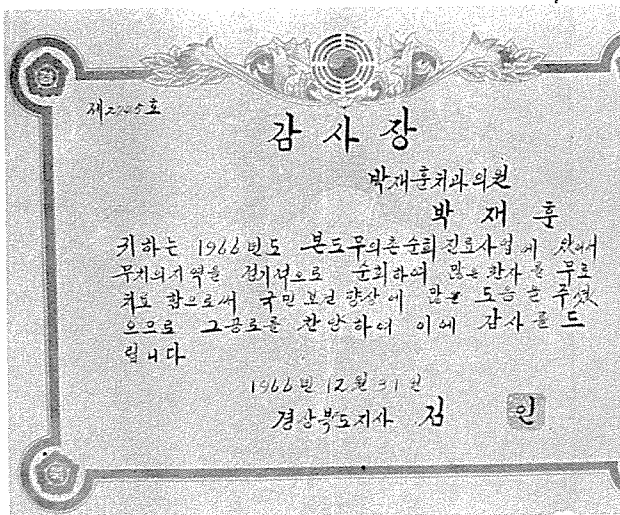 감사장
박재훈치과의원
박재훈
귀하는 1966년도 본도무의촌순회진료사업에 있어서
무치의지역을 정기적으로 순회하여 많은 환자를 무료
치료 함으로써 국민보건향상에 많은 도움을 주셨
으므로 그공로를 찬양하여 이에 감사를 드
립니다
1966년 12월 31일
경상북도지사 김 인